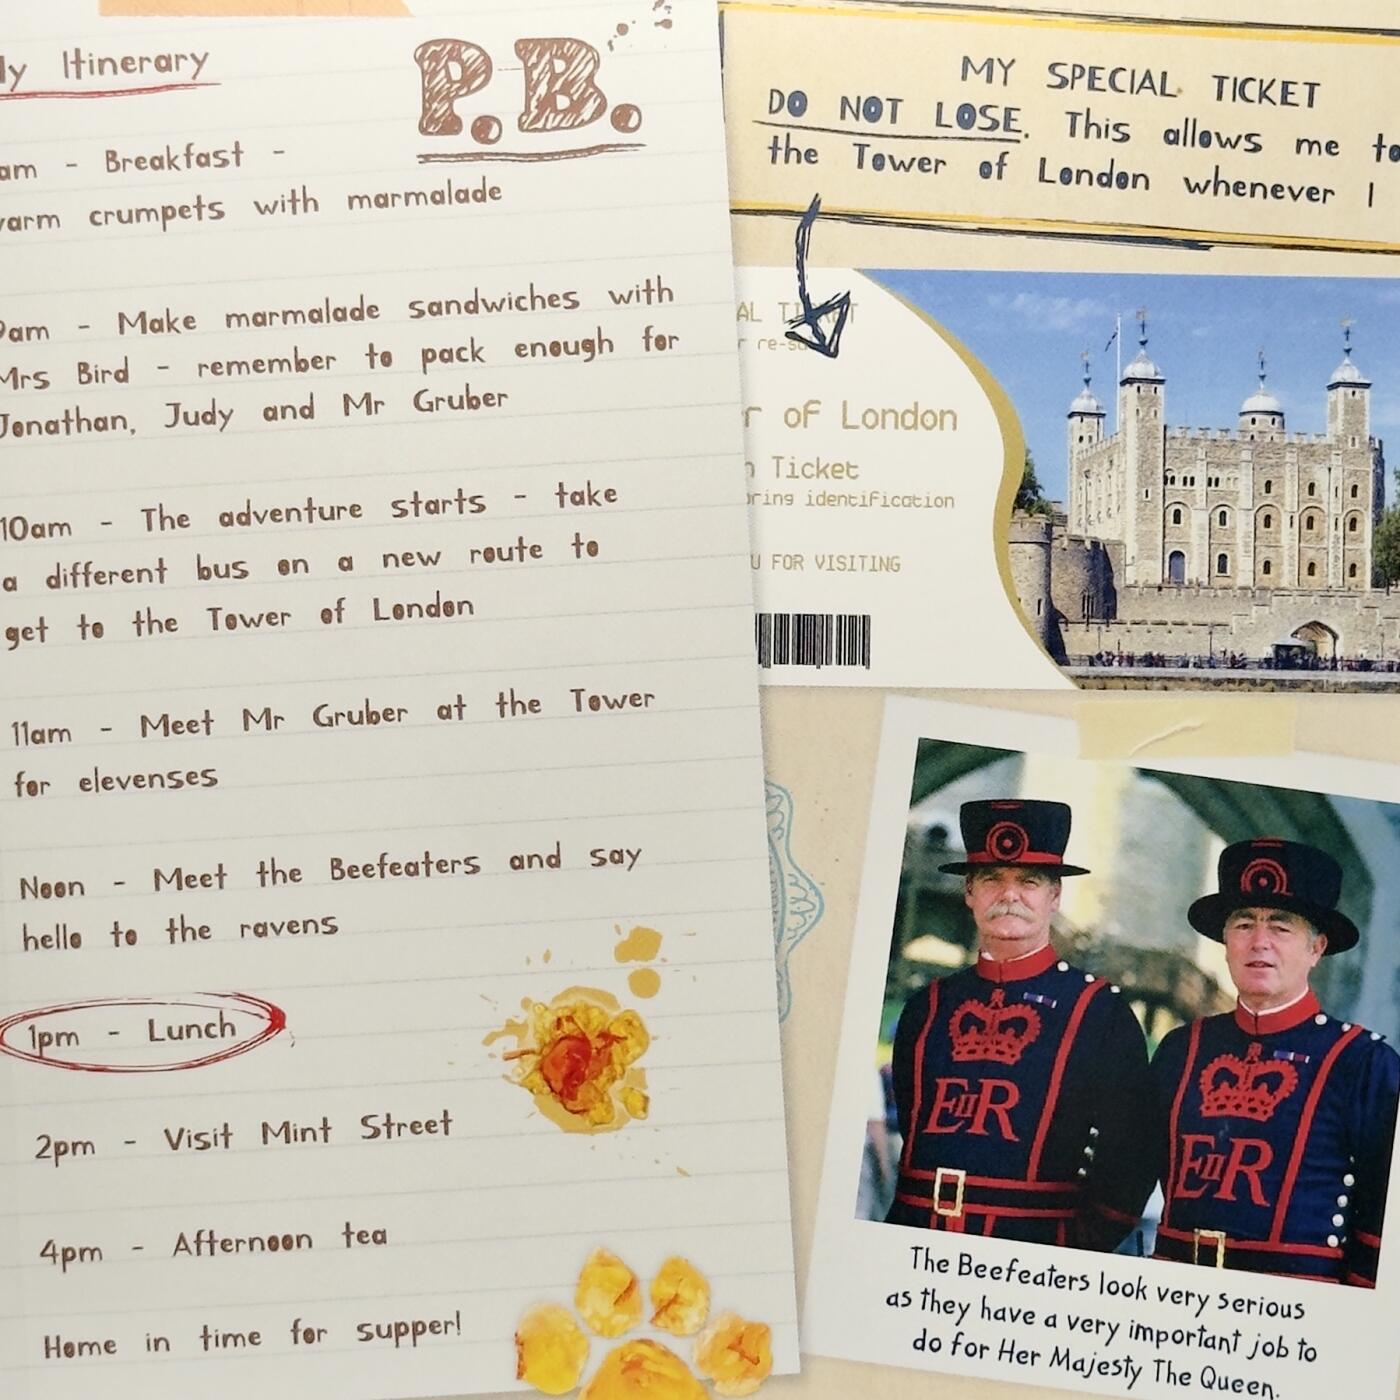 Itinerary
P.B.
am - Breakfast -
crumpets with marmalade
am - Make marmalade sandwiches with
Mrs Bird - remember to pack enough for
Jonathan, Judy and Mr Gruber
10am - The adventure starts - take
a different bus on a new route to
get to the Tower of London
11am - Meet Mr Gruber at the Tower
for elevenses
Noon - Meet the Beefeaters and say
hello to the ravens
1pm - Lunch
2pm - Visit Mint Street
4pm - Afternoon tea
Home in time for supper!
MY SPECIAL TICKET
DO NOT LOSE. This allows me
the Tower of London whenever I
of London
Ticket
identification
FOR VISITING
EIIR
EIIR
The Beefeaters look very serious
as they have a very important job to
do for Her Majesty The Queen.